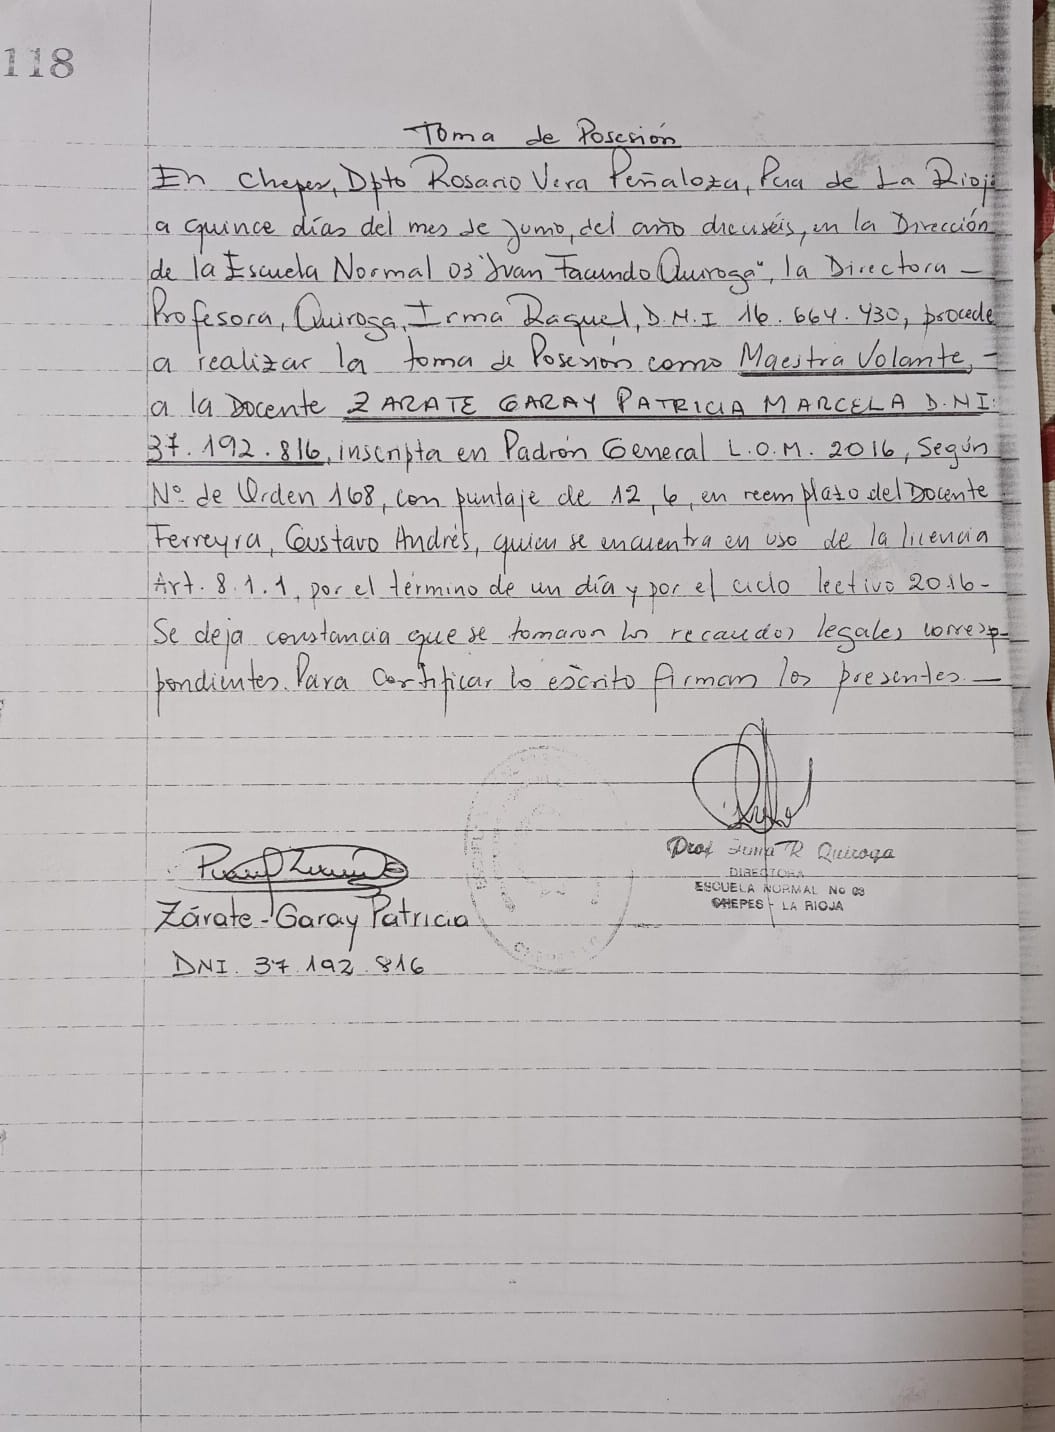 118
Toma de Posesión
En Chepes, Dpto Rosario Vera Peñaloza, Pcia de La Rioja
a quince días del mes de Junio, del año dieciséis, en la Dirección
de la Escuela Normal 03 "Juan Facundo Quiroga", la Directora -
Profesora, Quiroga, Irma Raquel, D.N.I 16.664.430, procede
a realizar la toma de Posesión como Maestra Volante, -
a la Docente ZARATE GARAY PATRICIA MARCELA D.NI:
37.192.816, inscripta en Padrón General L.O.M. 2016, Según
Nº de Orden 168, con puntaje de 12,6, en reemplazo del Docente
Ferreyra, Gustavo Andrés, quien se encuentra en uso de la licencia
Art. 8.1.1, por el término de un día y por el ciclo lectivo 2016-
Se deja constancia que se tomaron los recaudos legales corresp-
pondientes. Para certificar lo escrito firman los presentes. -
Prof Irma R Quiroga
DIRECTORA
ESCUELA NORMAL No 03
CHEPES - LA RIOJA
Zárate - Garay Patricia
DNI. 37.192.816